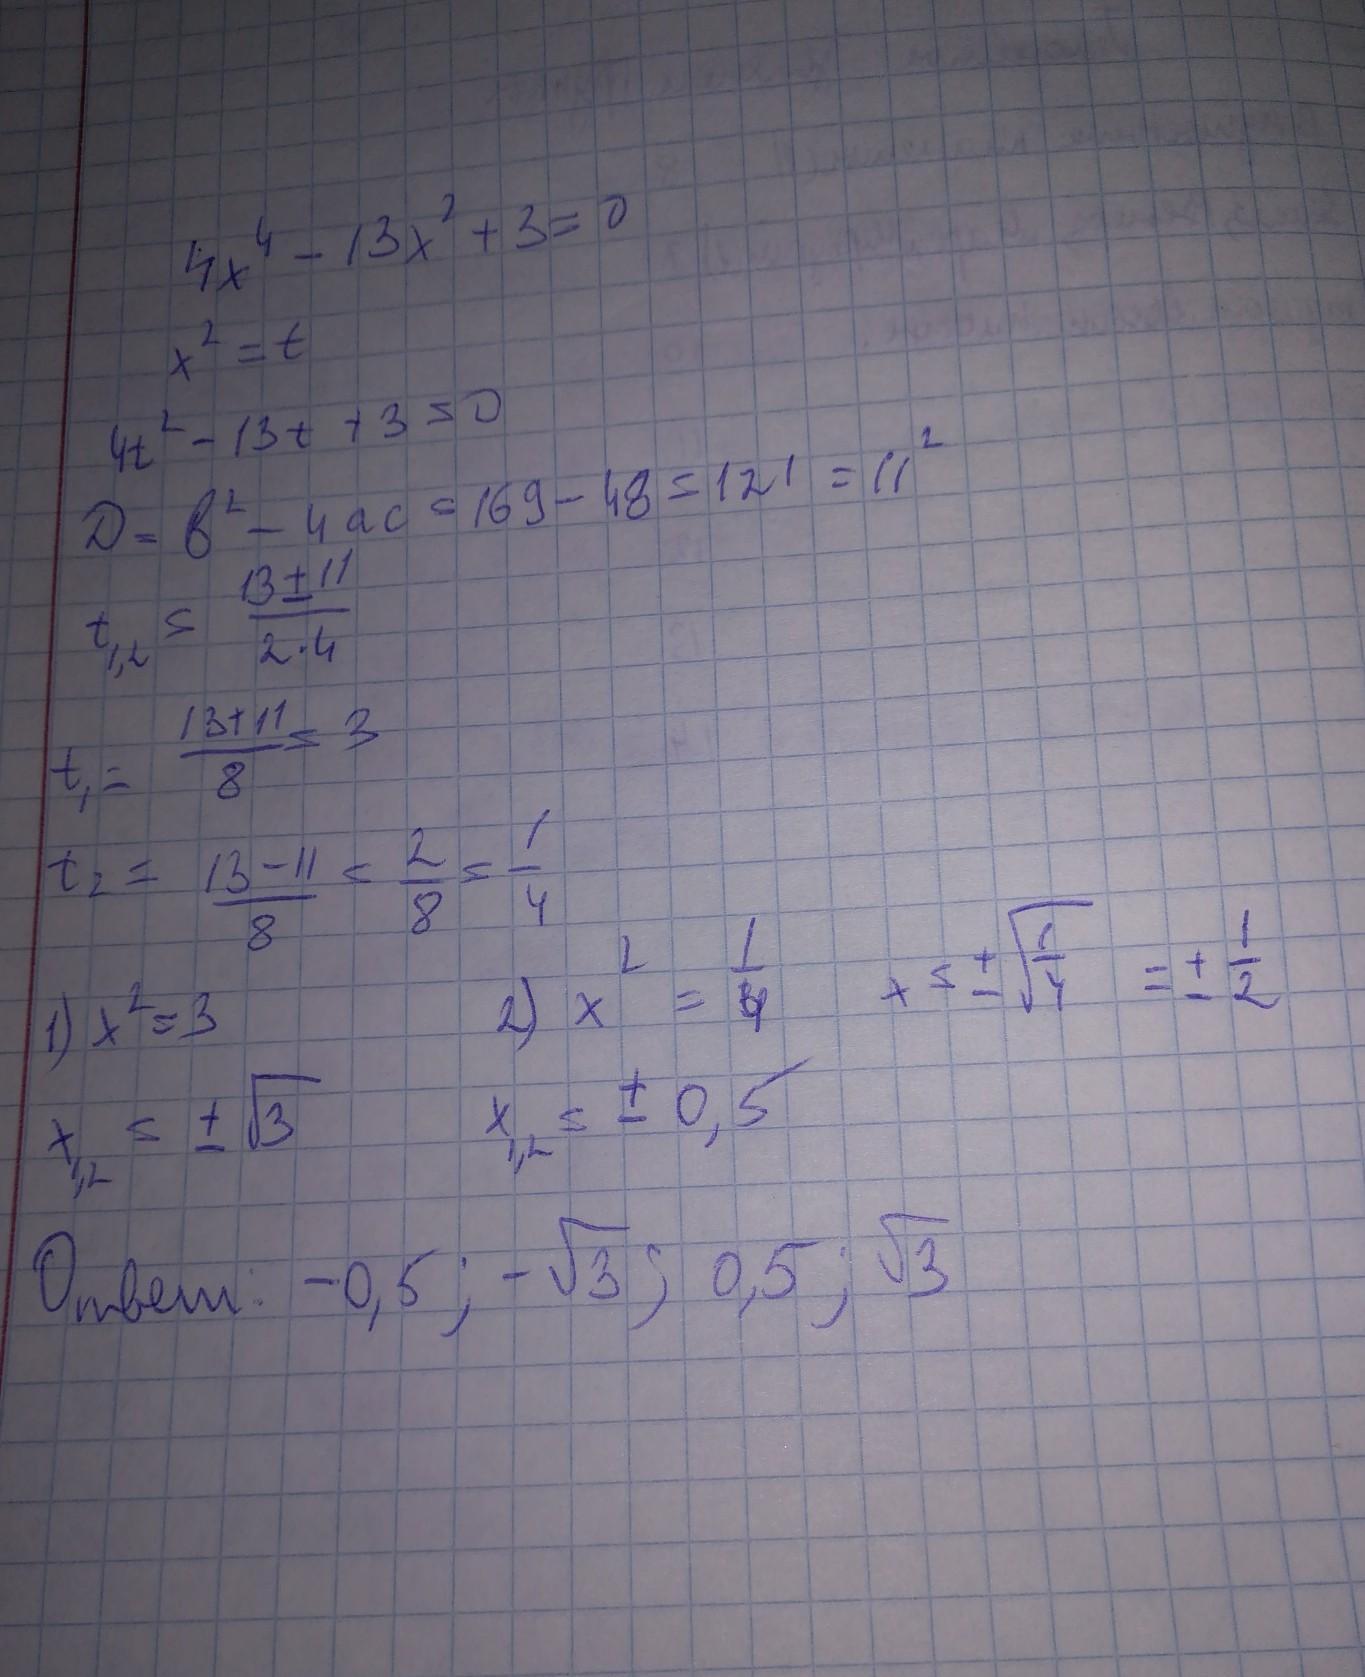 4x⁴ - 13x² + 3 = 0
x² = t
4t² - 13t + 3 = 0
D = b² - 4ac = 169 - 48 = 121 = 11²
t₁,₂ = (13 ± 11)/(2·4)
t₁ = (13+11)/8 = 3
t₂ = (13-11)/8 = 2/8 = 1/4
1) x² = 3 2) x² = 1/4 x = ±√(1/4) = ± 1/2
x₁,₂ = ±√3 x₁,₂ = ± 0,5
Ответ: -0,5; -√3; 0,5; √3